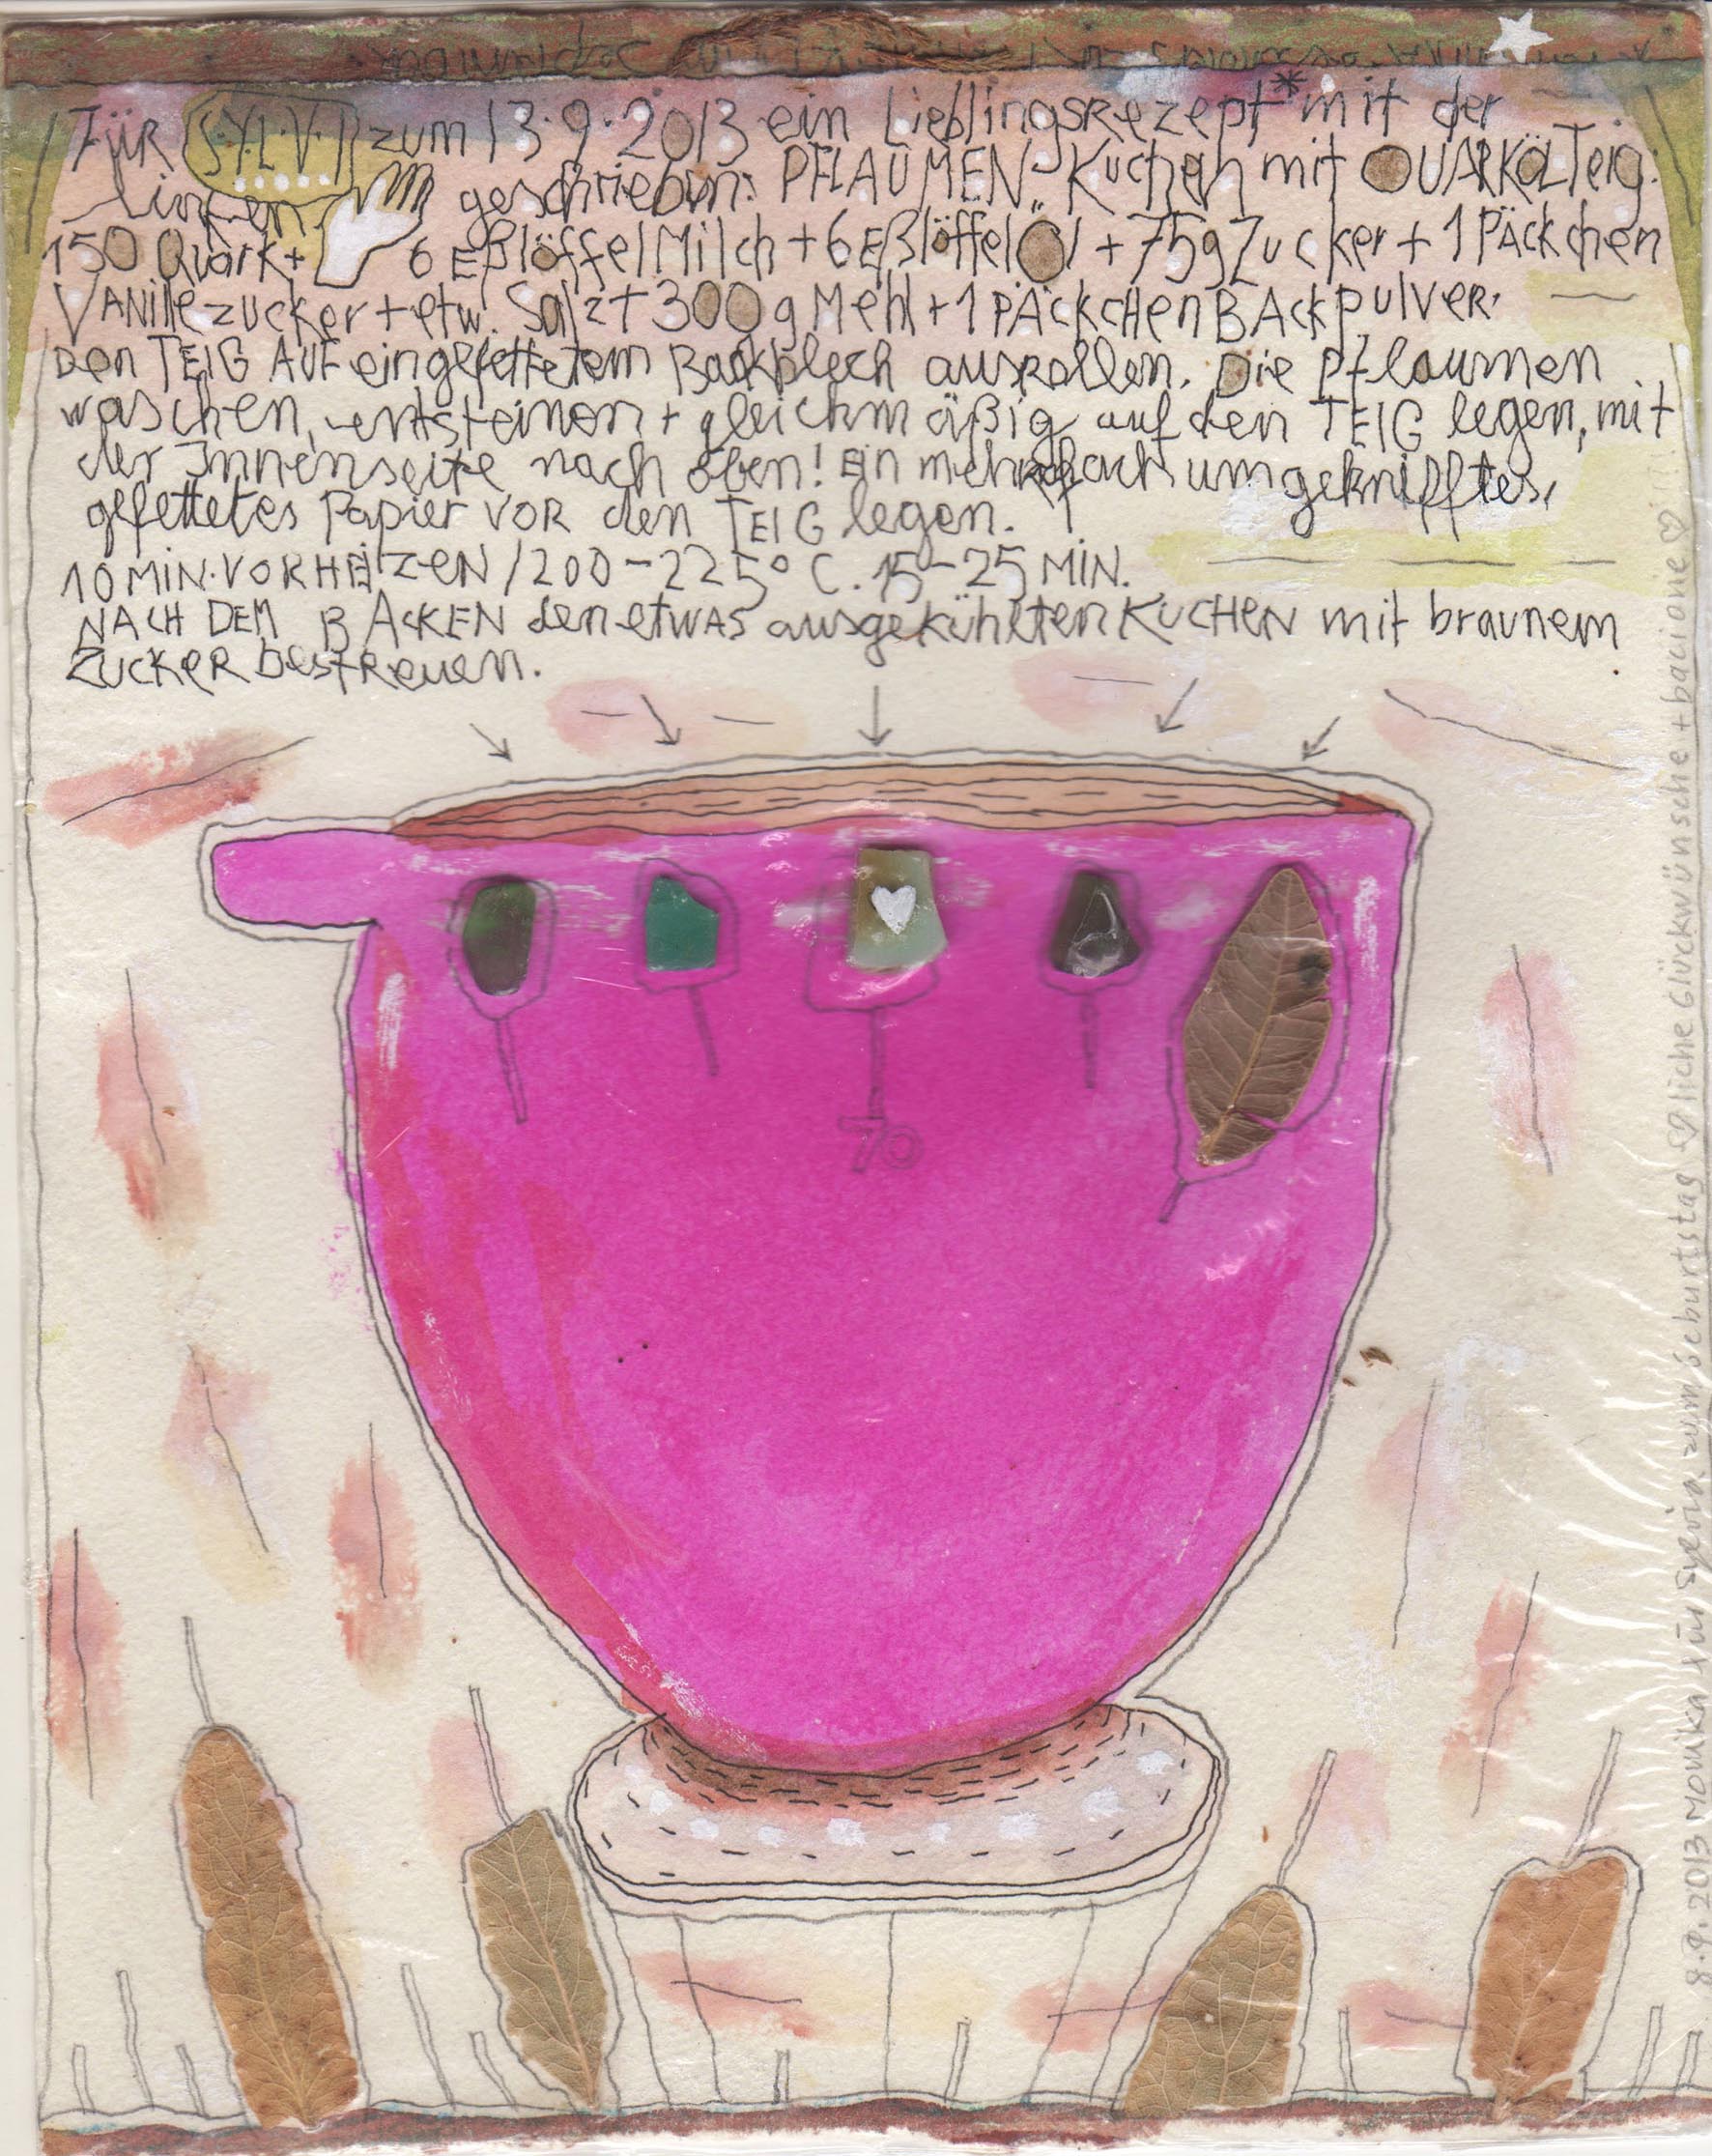 FÜR S.Y.L.V.I zum 13.9.2013 ein LieblingsRezept* mit der
linken geschrieben: PFLAUMEN-Kuchen mit QUARKÖLTeig:
150 Quark + 6 Eßlöffel Milch + 6 Eßlöffel Öl + 75g Zucker + 1 PÄckchen
VANillezucker + etw. Salz + 300 g Mehl + 1 PÄckCHen BAckpulver.
Den TEIG AUF eingefettetem Backblech ausrollen. Die Pflaumen
waschen, entsteinen + gleichmäßig auf den TEIG legen, mit
der Innenseite nach oben! Ein mehrfach umgeknifftes,
gefettetes Papier VOR den TEIG legen.
10 MIN. VORHEIZEN / 200 - 225° C. 15 - 25 MIN.
NACH DEM BACKEN den etwas ausgekühlten KUCHEN mit braunem
ZUCKER bestreuen.
70
8.9.2013 MONIKA für Sylvia zum Geburtstag ♡liche Glückwünsche + bacionie ♡